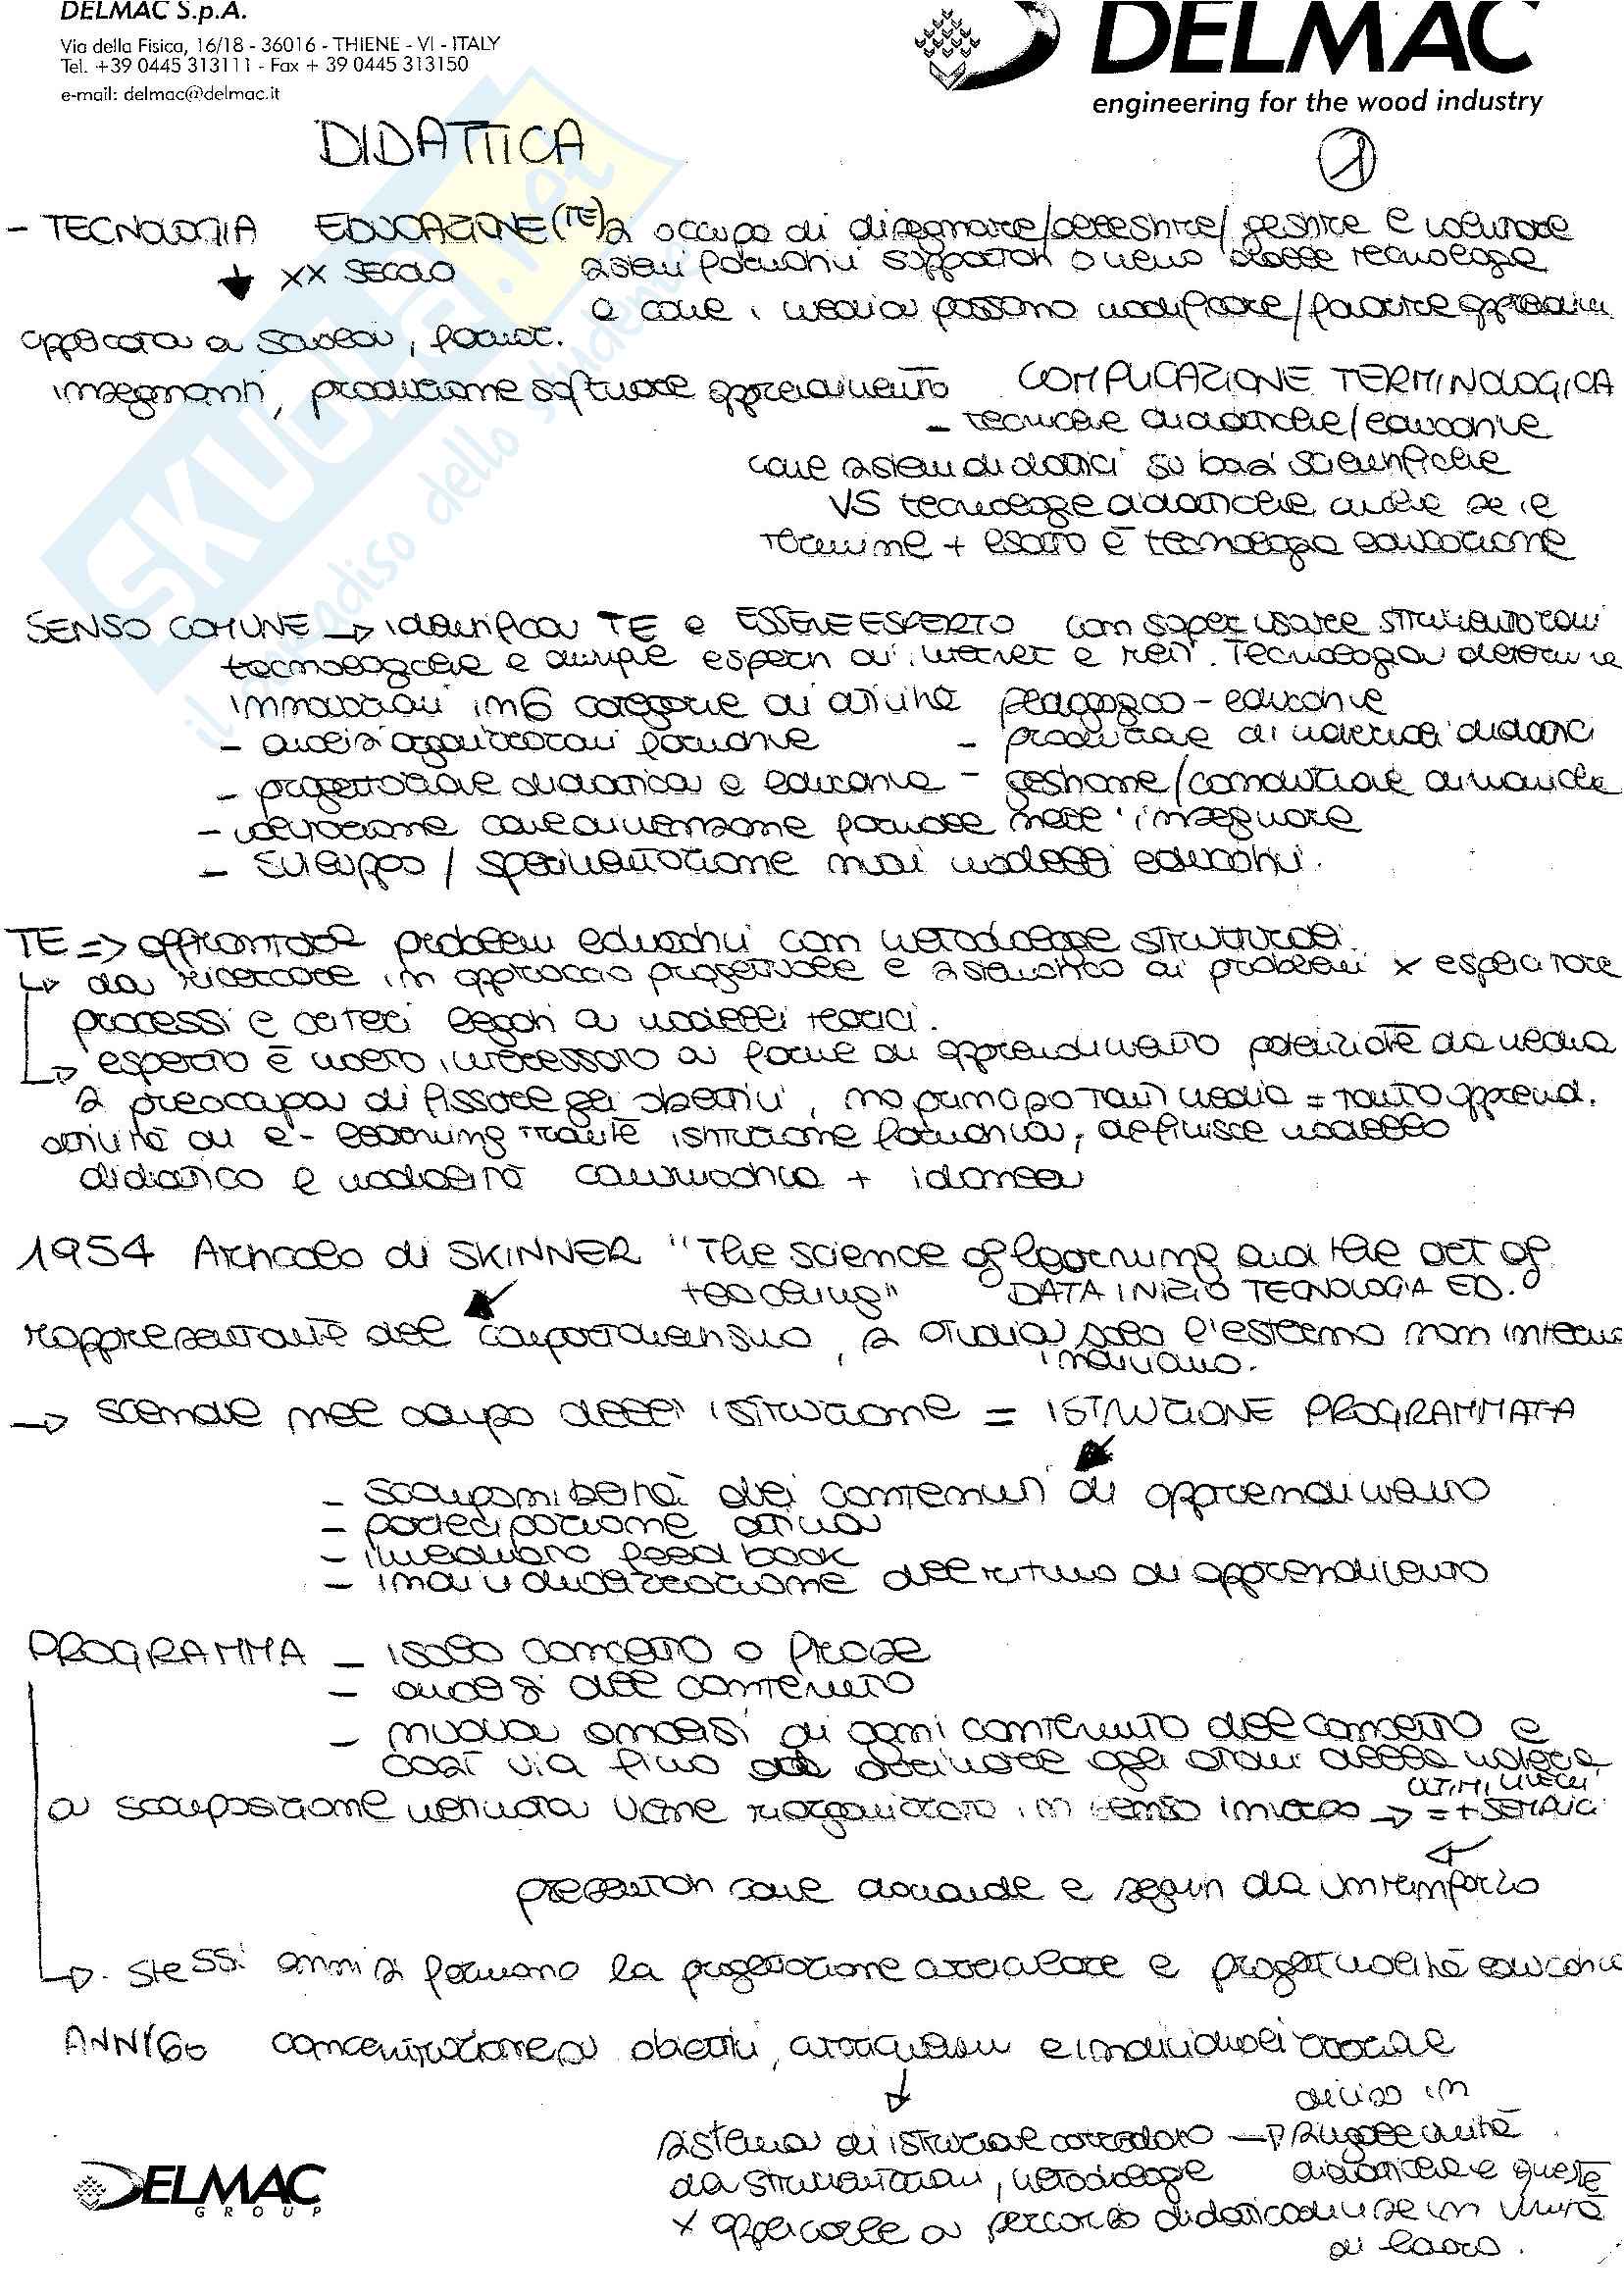 DELMAC S.p.A.
Via della Fisica, 16/18 - 36016 - THIENE - VI - ITALY
Tel. +39 0445 313111 - Fax + 39 0445 313150
e-mail: delmac@delmac.it
DELMAC
engineering for the wood industry
DIDATTICA
1
- TECNOLOGIA EDUCAZIONE (TE) si occupa di disegnare/ /gestire e valutare
XX SECOLO sistemi formativi supportati o meno dalle tecnologie
e come i media possono modificare/favorire
applicata a scuola, format.
insegnanti, produzione software apprendimento COMPLICAZIONE TERMINOLOGICA
- tecniche didattiche/educative
come sistemi didattici su basi scientifiche
VS tecnologie didattiche anche se il
termine + esatto è tecnologia educazione
SENSO COMUNE → identifica TE e ESSERE ESPERTO con saper usare strumentazioni
tecnologiche e esperti di internet e reti. Tecnologia
innovazioni in 6 categorie di attività pedagogico - educative
- analisi formative - produzione di materiali didattici
- progettazione didattica e educativa - gestione/conduzione
- valutazione come dimensione formale nell'insegnare
- sviluppo / sperimentazione nuovi modelli educativi.
TE => affrontare problemi educativi con metodologie strutturali.
da ricercare in approccio progettuale e sistematico ai problemi x
processi e criteri legati a modelli teorici.
esperto è molto interessato a forme di apprendimento potenziate da media
si preoccupa di fissare gli obiettivi, no principio tanti media = tanto apprend.
attività di e-learning tramite istruzione formativa, definisce modello
didattico e modalità comunicativa + idonea
1954 Articolo di SKINNER "The science of learning and the art of
teaching" DATA INIZIO TECNOLOGIA ED.
rappresentante del comportamentismo, si studia solo l'esterno non interno
individuo.
→ scende nel campo dell'istruzione = ISTRUZIONE PROGRAMMATA
- scomponibilità dei contenuti di apprendimento
- partecipazione attiva
- immediato feed back
- individualizzazione del ritmo di apprendimento
PROGRAMMA - isolo concetto o frase
- analisi del contenuto
- nuova analisi di ogni contenuto del concetto e
così via fino ad arrivare agli atomi della materia
a scomposizione avvenuta viene riorganizzato in senso inverso → ULTIMI LIVELLI
= + SEMPLICI
presentati come domande e seguiti da un rinforzo
stessi anni si formano la progettazione curricolare e progettualità educativa
ANNI '60 concentrazione su obiettivi, curriculum e individualizzazione
diviso in
sistema di istruzione corredato → singole unità
da strumentazioni, metodologie didattiche e queste
x applicarle a percorso didattico divise in unità
di lavoro.
DELMAC
GROUP
SKUOLA.net
il paradiso dello studente